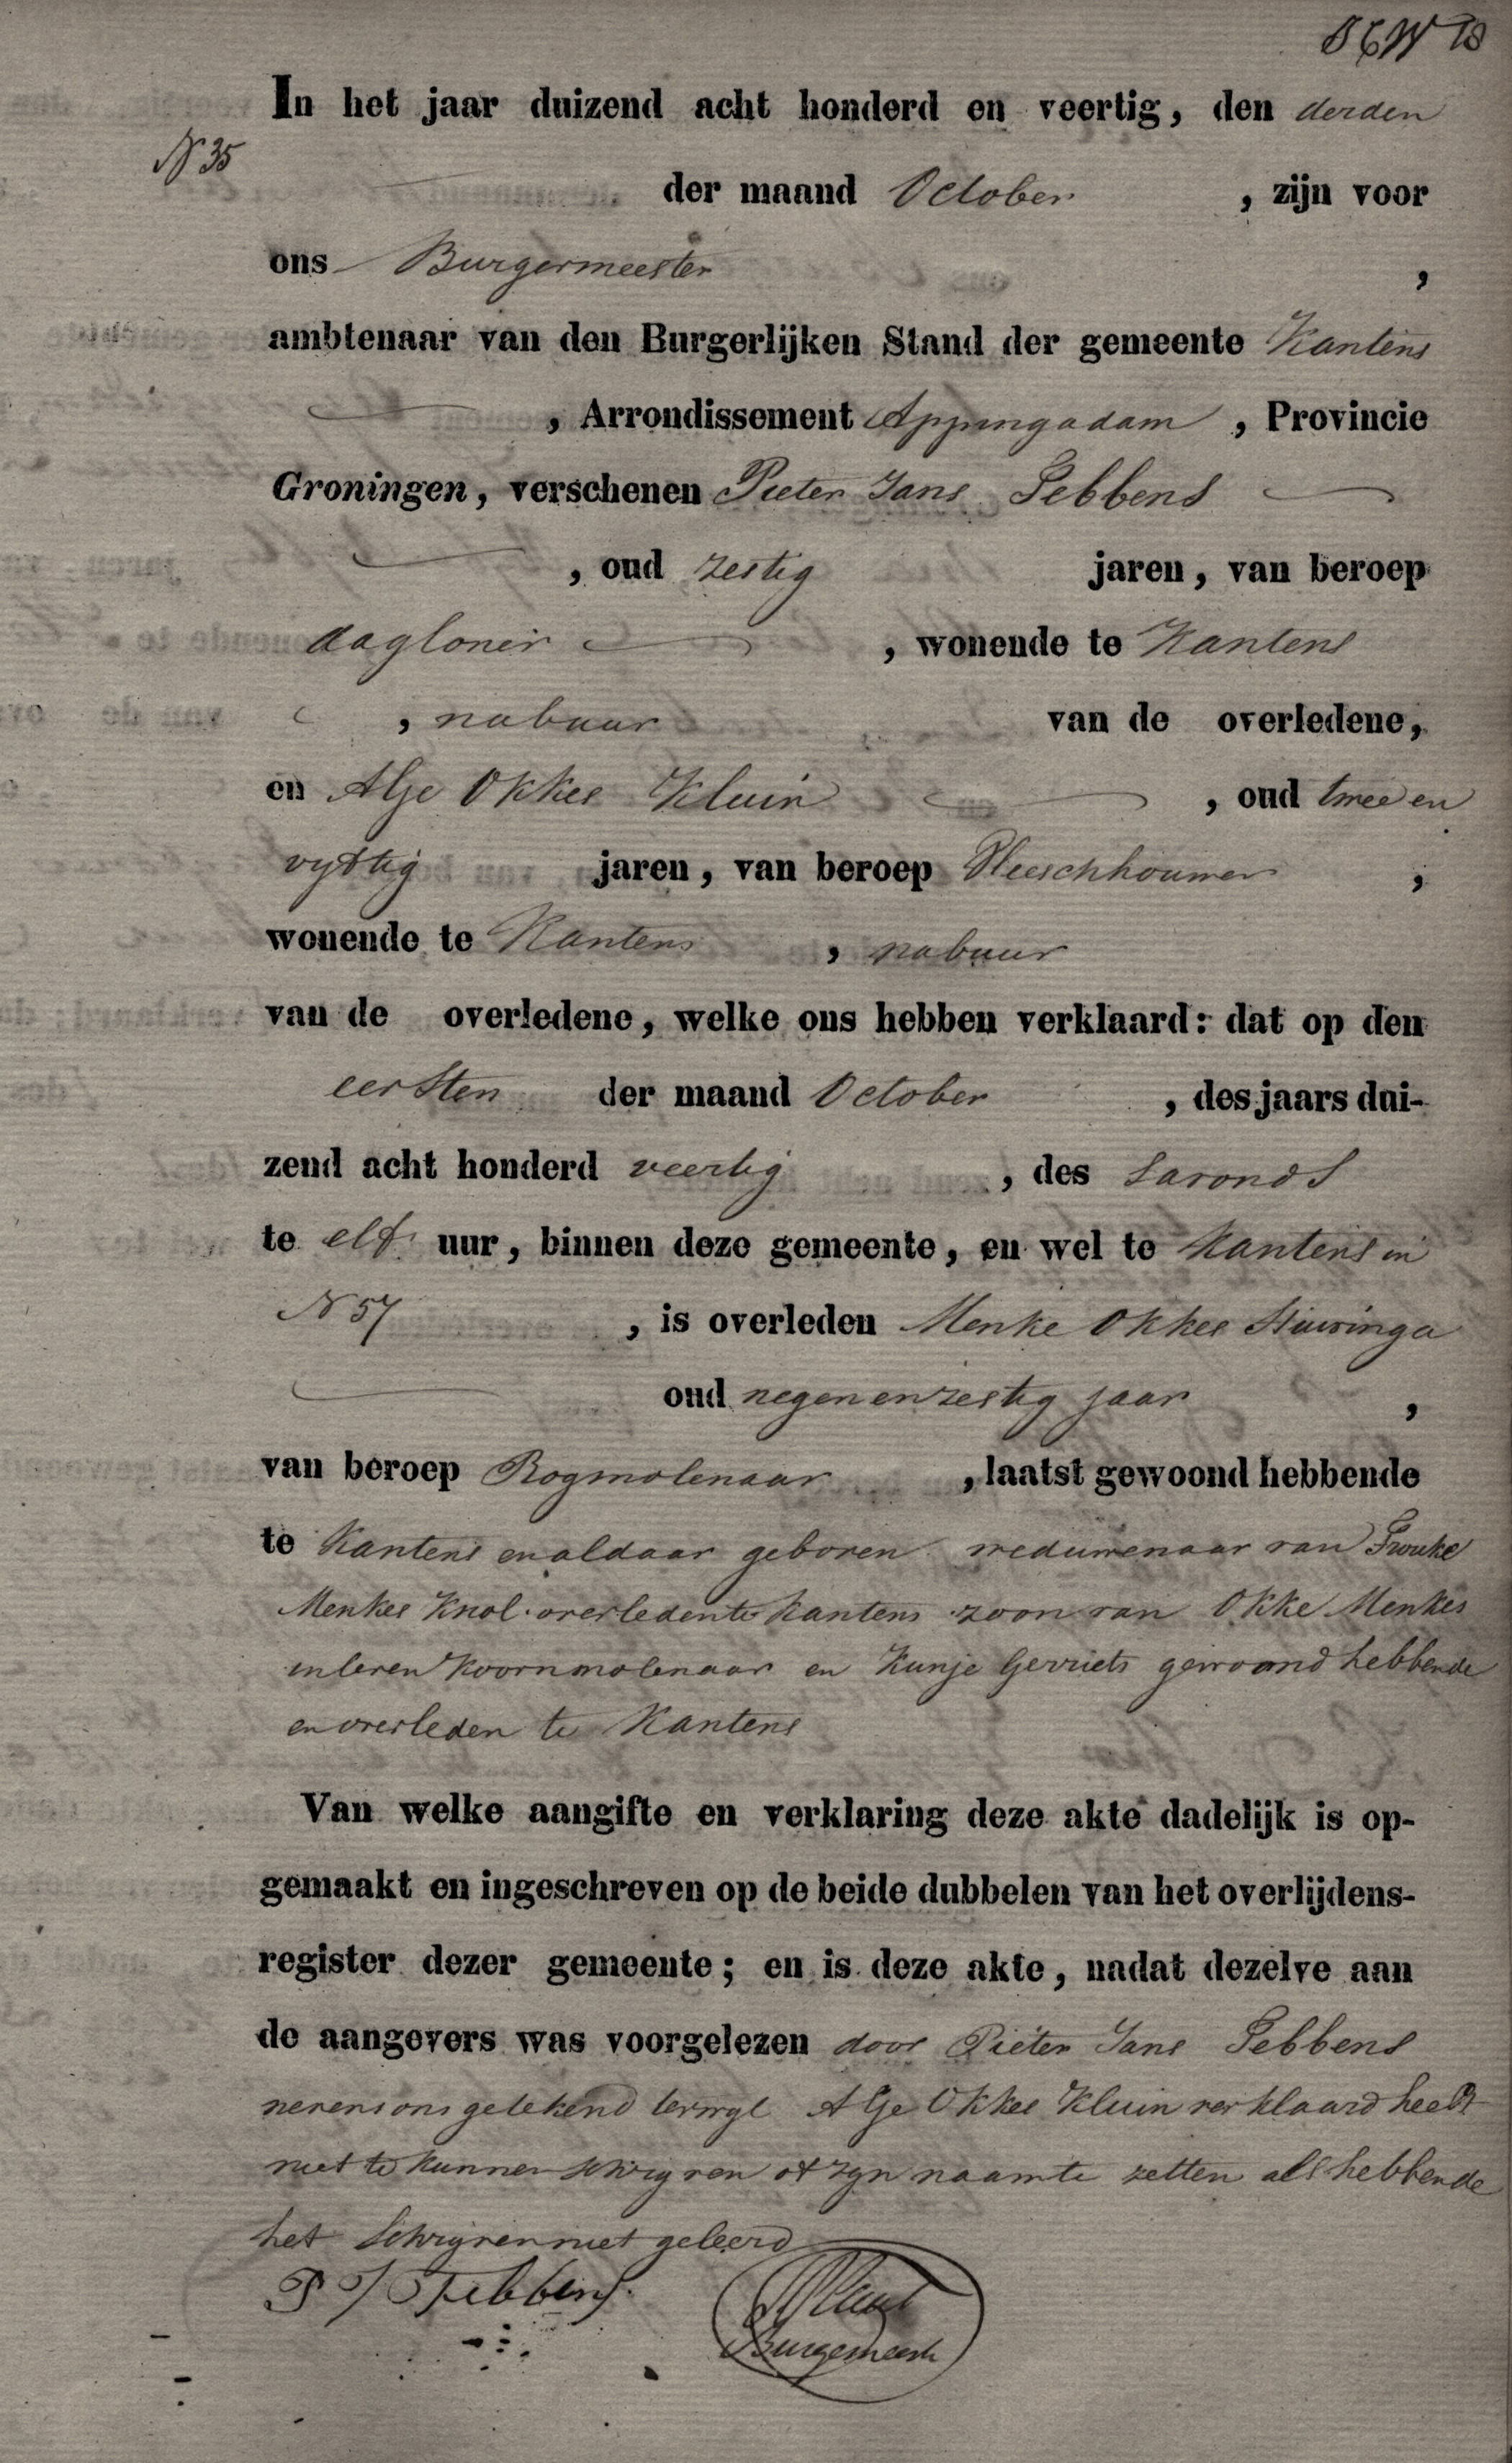 In het jaar duizend acht honderd en veertig, den derden
N 35
der maand October , zijn voor
ons Burgermeester ,
ambtenaar van den Burgerlijken Stand der gemeente Kantens
, Arrondissement Appingadam , Provincie
Groningen, verschenen Pieter Jans Tebbens
, oud zestig jaren, van beroep
dagloner , wonende te Kantens
, nabuur van de overledene,
en Alje Okkes Kluin , oud twee en
vyftig jaren, van beroep Vleeschhouwer ,
wonende te Kantens , nabuur
van de overledene, welke ons hebben verklaard: dat op den
eersten der maand October , des jaars dui-
zend acht honderd veertig , des savonds
te elf uur, binnen deze gemeente, en wel te Kantens in
N 57 , is overleden Menke Okkes Huizinga
oud negenenzestig jaar ,
van beroep Rogmolenaar , laatst gewoond hebbende
te Kantens en aldaar geboren weduwenaar van Frouke
Menkes Knol overleden te Kantens zoon van Okke Menkes
in leven Koornmolenaar en Kunje Gerriets gewoond hebbende
en overleden te Kantens
Van welke aangifte en verklaring deze akte dadelijk is op-
gemaakt en ingeschreven op de beide dubbelen van het overlijdens-
register dezer gemeente; en is deze akte, nadat dezelve aan
de aangevers was voorgelezen door Pieter Jans Tebbens
nevens ons getekend terwyl Alje Okkes Kluin verklaard heeft
niet te kunnen schryven of zyn naam te zetten als hebbende
het schryven niet geleerd
P J Tebbens.
Burgemeester